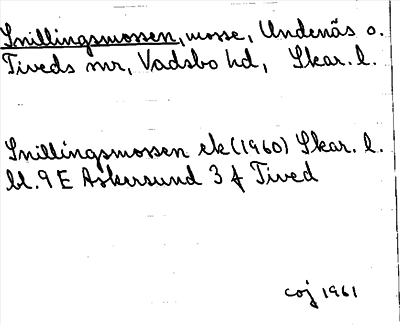 Snillingsmossen, mosse, Undenäs o.
Tiveds snr, Vadsbo hd, Skar. l.
Snillingsmossen ek (1960) Skar. l.
bl. 9 E Askersund 3 f Tived
coj 1961